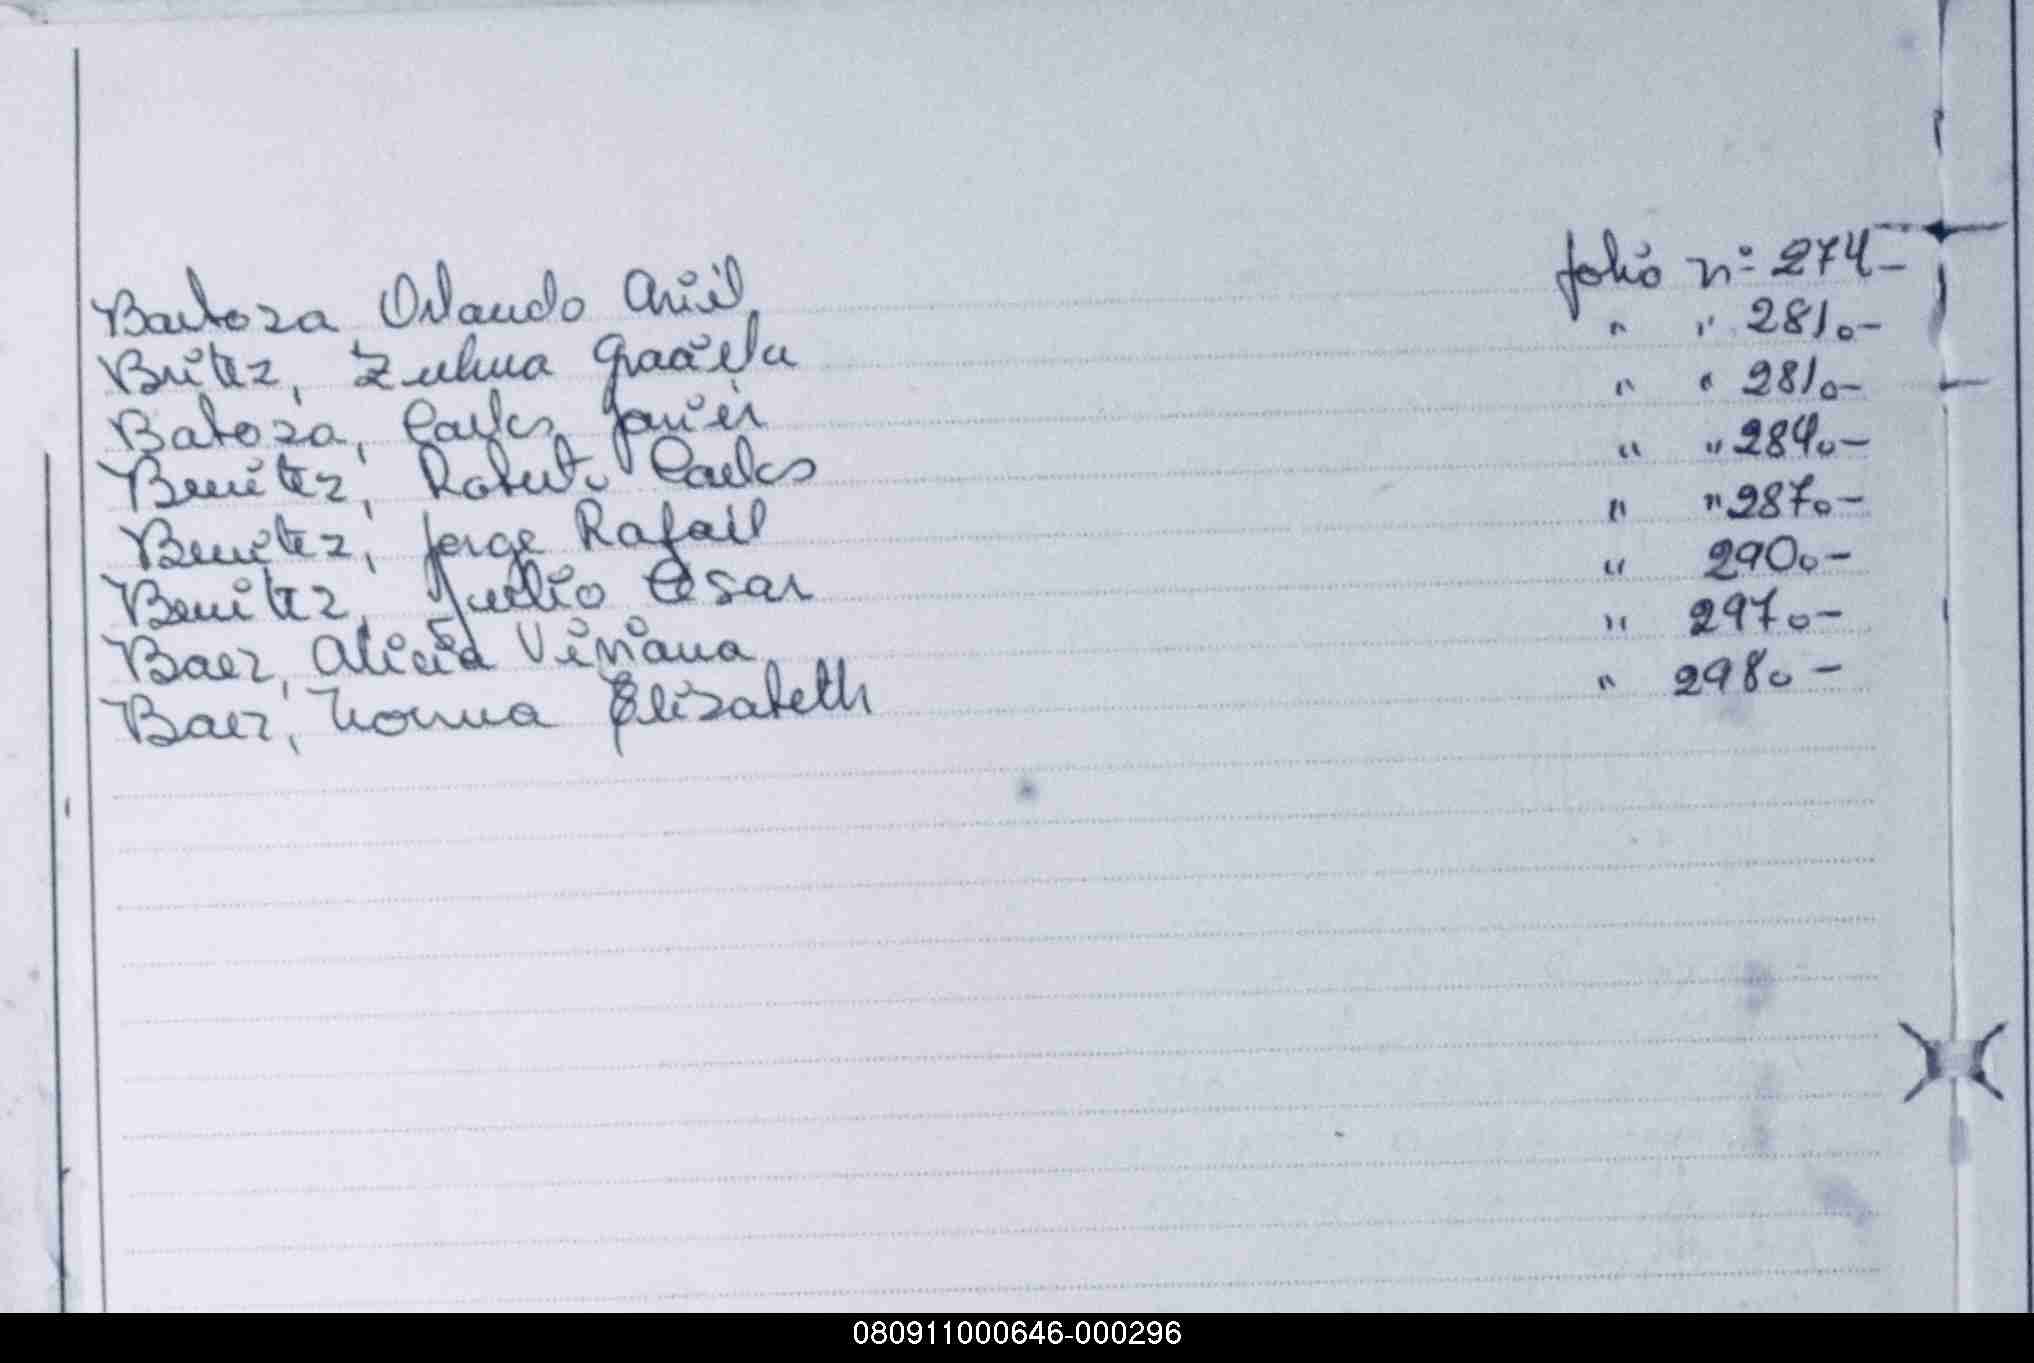 Barboza Orlando Ariel folio nº 274-
Britez, Zulma Graciela " " 281.-
Batoza, Carlos Javier " " 281.-
Benitez, Roberto Carlos " " 284.-
Benitez, Jorge Rafael " " 287.-
Benitez, Julio Cesar " 290.-
Baez, Alicia Viviana " 297.-
Baez, Norma Elizabeth " 298.-
080911000646-000296